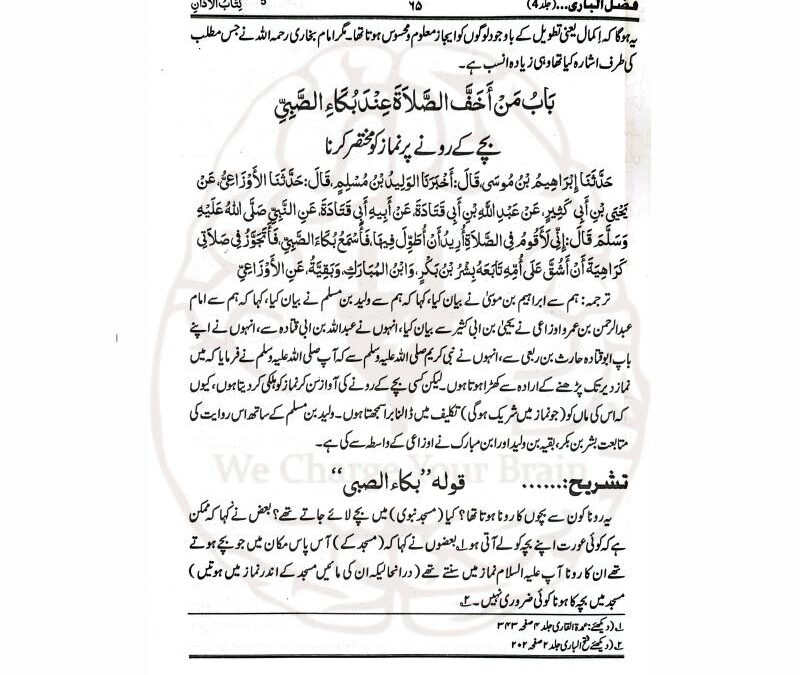 فضل الباری...(جلد 4) ۶۵ کِتَابُ الْاَذَان
یہ ہوگا کہ اِکمال یعنی تطویل کے باوجود لوگوں کو ایجاز معلوم و محسوس ہوتا تھا۔ مگر امام بخاری رحمہ اللہ نے جس مطلب
کی طرف اشارہ کیا تھا وہی زیادہ انسب ہے۔
بَابُ مَنْ أَخَفَّ الصَّلاَةَ عِنْدَ بُكَاءِ الصَّبِيِّ
بچے کے رونے پر نماز کو مختصر کرنا
حَدَّثَنَا إِبْرَاهِيمُ بْنُ مُوسَى، قَالَ: أَخْبَرَنَا الوَلِيدُ بْنُ مُسْلِمٍ، قَالَ: حَدَّثَنَا الأَوْزَاعِيُّ، عَنْ
يَحْيَى بْنِ أَبِي كَثِيرٍ، عَنْ عَبْدِ اللَّهِ بْنِ أَبِي قَتَادَةَ، عَنْ أَبِيهِ أَبِي قَتَادَةَ، عَنِ النَّبِيِّ صَلَّى اللهُ عَلَيْهِ
وَسَلَّمَ قَالَ: إِنِّي لَأَقُومُ فِي الصَّلاَةِ أُرِيدُ أَنْ أُطَوِّلَ فِيهَا، فَأَسْمَعُ بُكَاءَ الصَّبِيِّ، فَأَتَجَوَّزُ فِي صَلاَتِي
كَرَاهِيَةَ أَنْ أَشُقَّ عَلَى أُمِّهِ تَابَعَهُ بِشْرُ بْنُ بَكْرٍ، وَابْنُ المُبَارَكِ، وَبَقِيَّةُ، عَنِ الأَوْزَاعِيِّ
ترجمہ: ہم سے ابراہیم بن موسیٰ نے بیان کیا، کہا کہ ہم سے ولید بن مسلم نے بیان کیا، کہا کہ ہم سے امام
عبدالرحمن بن عمرو اوزاعی نے یحییٰ بن ابی کثیر سے بیان کیا، انہوں نے عبداللہ بن ابی قتادہ سے، انہوں نے اپنے
باپ ابوقتادہ حارث بن ربعی سے، انہوں نے نبی کریم صلی اللہ علیہ وسلم سے کہ آپ صلی اللہ علیہ وسلم نے فرمایا کہ میں
نماز دیر تک پڑھنے کے ارادہ سے کھڑا ہوتا ہوں۔ لیکن کسی بچے کے رونے کی آواز سن کر نماز کو ہلکی کر دیتا ہوں، کیوں
کہ اس کی ماں کو (جو نماز میں شریک ہوگی) تکلیف میں ڈالنا برا سمجھتا ہوں۔ ولید بن مسلم کے ساتھ اس روایت کی
متابعت بشر بن بکر، بقیہ بن ولید اور ابن مبارک نے اوزاعی کے واسطہ سے کی ہے۔
We Change Your Brain
تشریح:...... قولہ ”بکاء الصبی“
یہ رونا کون سے بچوں کا رونا ہوتا تھا؟ کیا (مسجد نبوی) میں بچے لائے جاتے تھے؟ بعض نے کہا کہ ممکن
ہے کہ کوئی عورت اپنے بچہ کو لے آتی ہو ۱۔ بعضوں نے کہا کہ (مسجد کے) آس پاس مکان میں جو بچے ہوتے
تھے ان کا رونا آپ علیہ السلام نماز میں سنتے تھے (درانحالیکہ ان کی مائیں مسجد کے اندر نماز میں ہوتیں)
مسجد میں بچہ کا ہونا کوئی ضروری نہیں۔ ۲۔
۱۔ (دیکھئے: عمدۃ القاری جلد ۴ صفحہ ۳۴۳
۲۔ (دیکھئے فتح الباری جلد ۲ صفحہ ۲۰۲